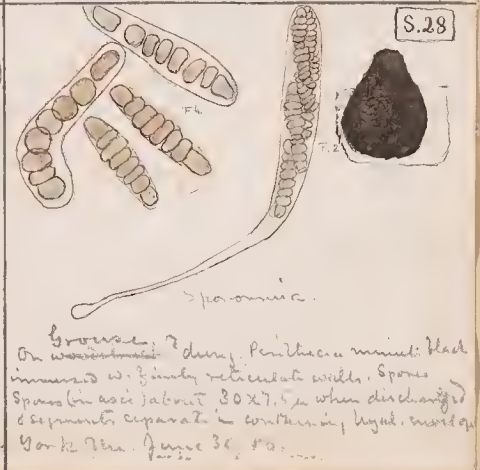 S.28
F.4.
F.2
Sporormia.
Grouse.
On dung. Perithecia minute black
immersed w. finely reticulate walls. Spores
Spores (in asci) about 30 x 7.5 µ when discharged
segments separate in containing hyal. envelope
York June